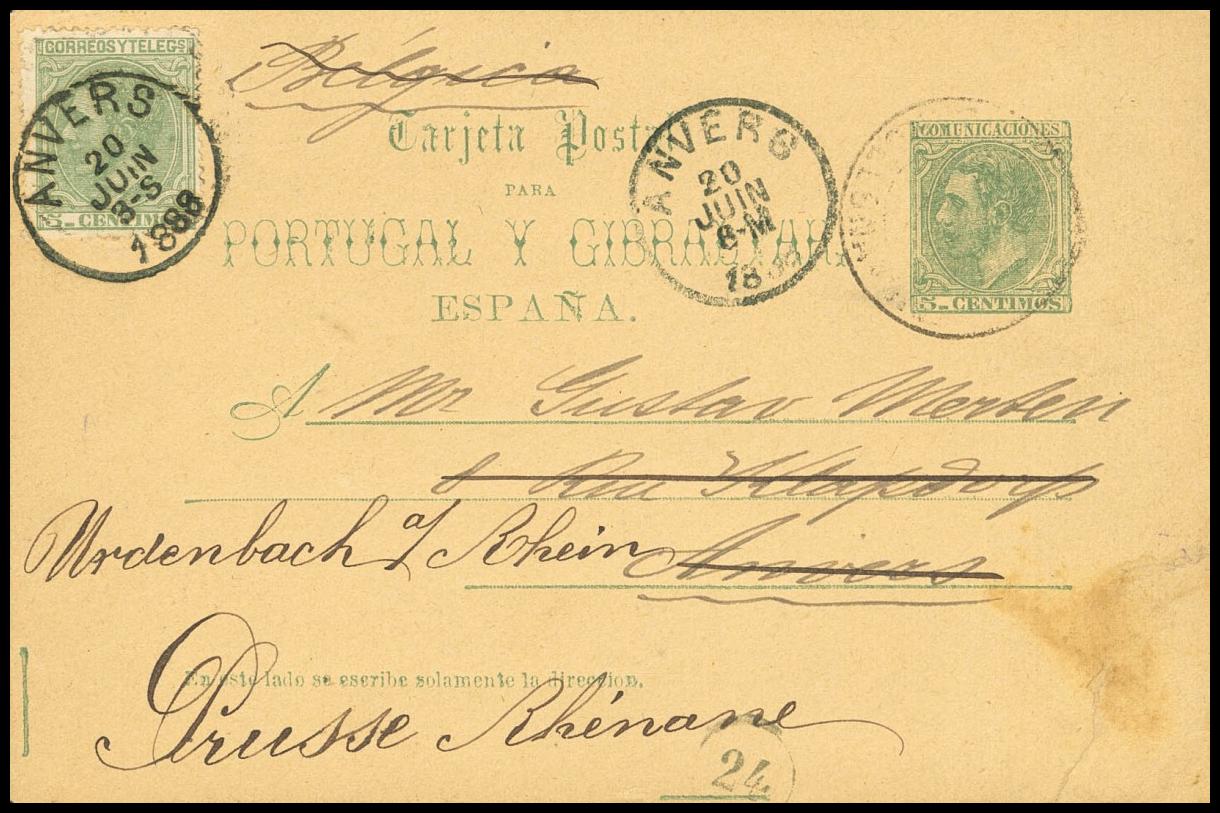 CORREOS Y TELEGS
5 - CENTIMOS
ANVERS
20
JUIN
8-S
1888
Bélgica
Tarjeta Posta
PARA
PORTUGAL Y GIBRALTAR
ESPAÑA.
ANVERS
20
JUIN
8-M
18
COMUNICACIONES
5 - CENTIMOS
A Mr Gustav Merten
8 Rue Klapdorp
Urdenbach a/ Rhein Anvers
En este lado se escribe solamente la direccion.
Prusse Rhénane
24